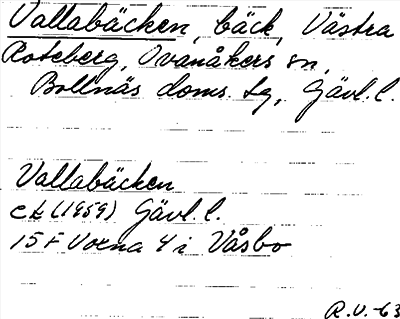 Vallabäcken, bäck, Västra
Roteberg, Ovanåkers sn,
Bollnäs doms. tg, Gävl. l.
Vallabäcken
ek (1959) Gävl. l.
15 F Voxna 4 i Våsbo
R.V. -63